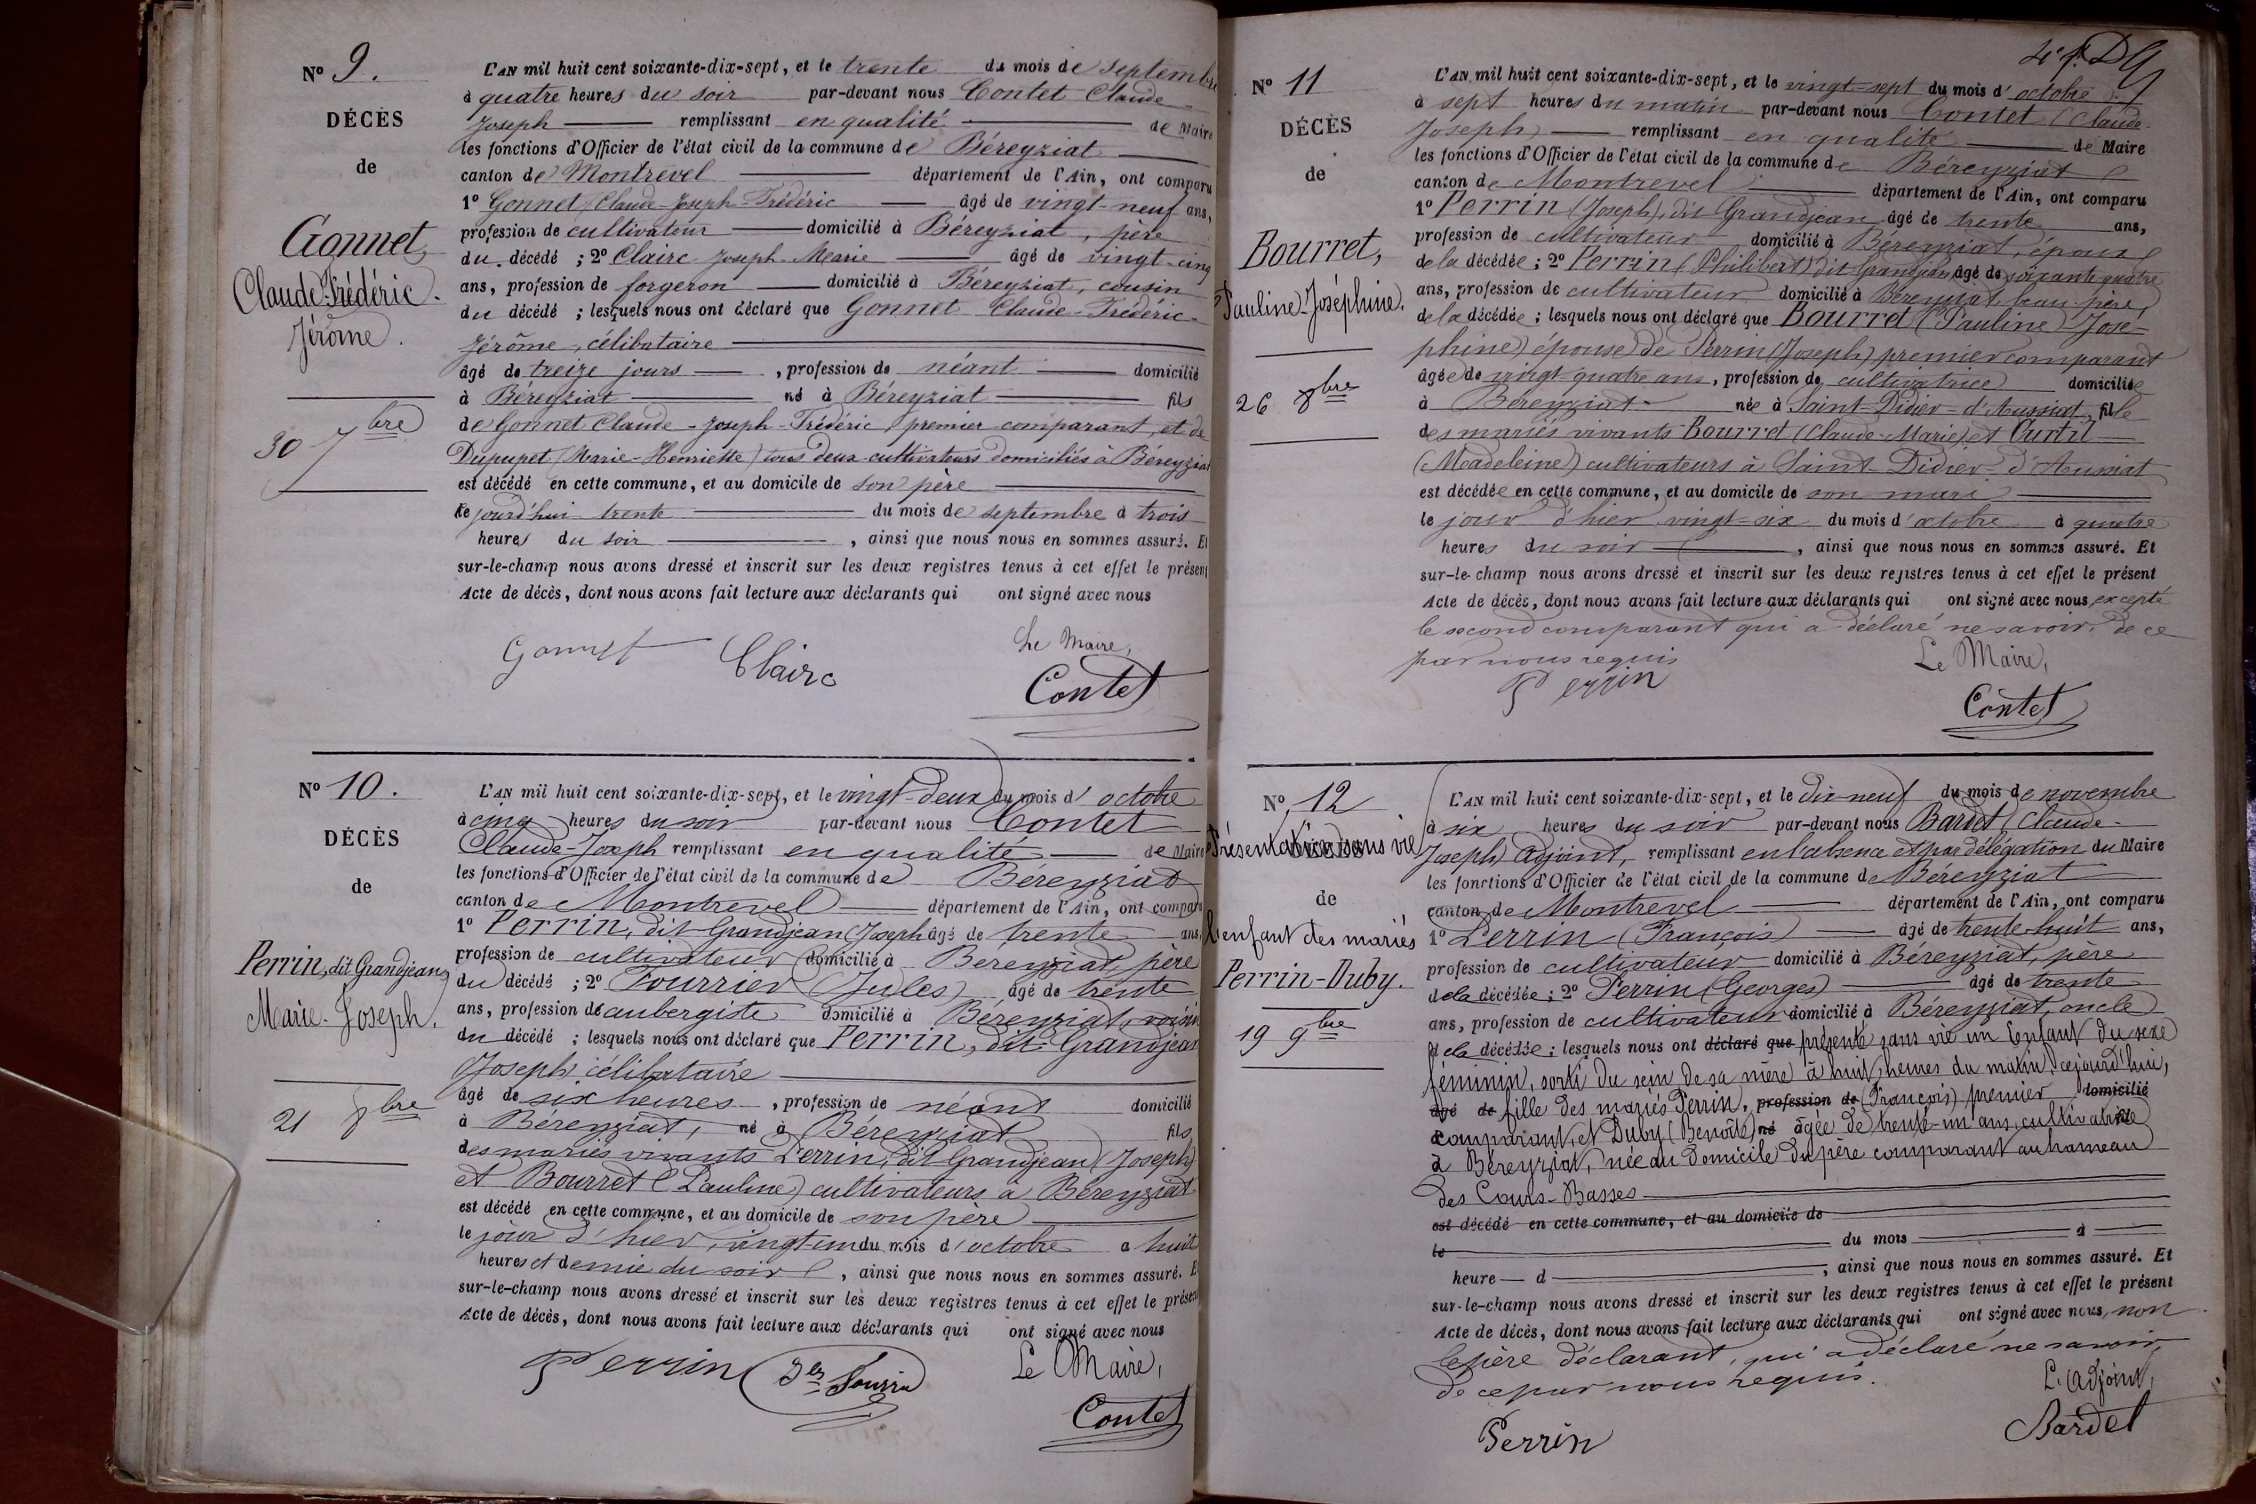 Nº 9.
DÉCÈS
de
Gonnet,
Claude-Frédéric-
Jérôme.
30 7bre
L'AN mil huit cent soixante-dix-sept, et le trente du mois de septembre
à quatre heures du soir par-devant nous Contet Claude-
Joseph remplissant en qualité de Maire
les fonctions d'Officier de l'état civil de la commune de Béreyziat
canton de Montrevel département de l'Ain, ont comparu
1º Gonnet (Claude-Joseph-Frédéric âgé de vingt-neuf ans,
profession de cultivateur domicilié à Béreyziat, père
du décédé ; 2º Claire Joseph-Marie âgé de vingt-cinq
ans, profession de forgeron domicilié à Béreyziat, cousin
du décédé ; lesquels nous ont déclaré que Gonnet Claude-Frédéric-
Jérôme, célibataire
âgé de treize jours, profession de néant domicilié
à Béreyziat né à Béreyziat fils
de Gonnet Claude-Joseph-Frédéric, premier comparant, et de
Dupupet (Marie-Henriette) tous deux cultivateurs domiciliés à Béreyziat
est décédé en cette commune, et au domicile de son père
le jourd'hui trente du mois de septembre à trois
heures du soir, ainsi que nous nous en sommes assuré. Et
sur-le-champ nous avons dressé et inscrit sur les deux registres tenus à cet effet le présent
Acte de décès, dont nous avons fait lecture aux déclarants qui ont signé avec nous
Gonnet Claire Le Maire,
Contet
Nº 10.
DÉCÈS
de
Perrin, dit Grandjean
Marie-Joseph.
21 8bre
L'AN mil huit cent soixante-dix-sept, et le vingt-deux du mois d'octobre
à cinq heures du soir par-devant nous Contet
Claude-Joseph remplissant en qualité de Maire
les fonctions d'Officier de l'état civil de la commune de Béreyziat
canton de Montrevel département de l'Ain, ont comparu
1º Perrin, dit Grandjean (Joseph âgé de trente ans,
profession de cultivateur domicilié à Béreyziat, père
du décédé ; 2º Fourrier (Jules) âgé de trente
ans, profession de aubergiste domicilié à Béreyziat, voisin
du décédé ; lesquels nous ont déclaré que Perrin, dit Grandjean
Joseph, célibataire
âgé de six heures, profession de néant domicilié
à Béreyziat, né à Béreyziat fils
des mariés vivants Perrin, dit Grandjean (Joseph)
et Bourret (Pauline) cultivateurs à Béreyziat
est décédé en cette commune, et au domicile de son père
le jour d'hier, vingt-un du mois d'octobre à huit
heures et demie du soir, ainsi que nous nous en sommes assuré. Et
sur-le-champ nous avons dressé et inscrit sur les deux registres tenus à cet effet le présent
Acte de décès, dont nous avons fait lecture aux déclarants qui ont signé avec nous
Perrin Le Maire,
Contet
Nº 11
DÉCÈS
de
Bourret,
Pauline-Joséphine.
26 8bre
L'AN mil huit cent soixante-dix-sept, et le vingt-sept du mois d'octobre
à sept heures du matin par-devant nous Contet (Claude-
Joseph) remplissant en qualité de Maire
les fonctions d'Officier de l'état civil de la commune de Béreyziat
canton de Montrevel département de l'Ain, ont comparu
1º Perrin (Joseph), dit Grandjean âgé de trente ans,
profession de cultivateur domicilié à Béreyziat, époux
de la décédée ; 2º Perrin (Philibert) dit Grandjean âgé de soixante quatre
ans, profession de cultivateur domicilié à Béreyziat beau-père,
de la décédée ; lesquels nous ont déclaré que Bourret (Pauline-José-
phine) épouse de Perrin (Joseph) premier comparant
âgée de vingt-quatre ans, profession de cultivatrice domiciliée
à Béreyziat née à Saint-Didier-d'Aussiat, fille
des mariés vivants Bourret (Claude-Marie) et Curtil
(Madeleine) cultivateurs à Saint-Didier-d'Aussiat
est décédée en cette commune, et au domicile de son mari
le jour d'hier vingt-six du mois d'octobre à quatre
heures du soir, ainsi que nous nous en sommes assuré. Et
sur-le-champ nous avons dressé et inscrit sur les deux registres tenus à cet effet le présent
Acte de décès, dont nous avons fait lecture aux déclarants qui ont signé avec nous, excepté
le second comparant qui a déclaré ne savoir, de ce
par nous requis
Perrin Le Maire,
Contet
Nº 12
Présentation sans vie
DÉCÈS
de
l'enfant des mariés
Perrin-Duby.
19 9bre
L'AN mil huit cent soixante-dix-sept, et le dix-neuf du mois de novembre
à six heures du soir par-devant nous Bardet (Claude-
Joseph) adjoint, remplissant en l'absence et par délégation du Maire
les fonctions d'Officier de l'état civil de la commune de Béreyziat
canton de Montrevel département de l'Ain, ont comparu
1º Perrin (François) âgé de trente-huit ans,
profession de cultivateur domicilié à Béreyziat, père
de la décédée ; 2º Perrin (Georges) âgé de trente
ans, profession de cultivateur domicilié à Béreyziat, oncle
de la décédée ; lesquels nous ont déclaré que présenté sans vie un Enfant du sexe
féminin, sorti du sein de sa mère à huit heures du matin, cejourd'hui,
âgé de fille des mariés Perrin, profession de (François) premier domicilié
comparant, et Duby (Benoîte) né âgée de trente-un ans, cultivatrice
à Béreyziat, née au domicile du père comparant au hameau
des Cours-Basses
est décédé en cette commune, et au domicile de
le du mois à
heure d, ainsi que nous nous en sommes assuré. Et
sur-le-champ nous avons dressé et inscrit sur les deux registres tenus à cet effet le présent
Acte de décès, dont nous avons fait lecture aux déclarants qui ont signé avec nous, non
le père déclarant, qui a déclaré ne savoir,
de ce par nous requis.
L'adjoint,
Perrin Bardet